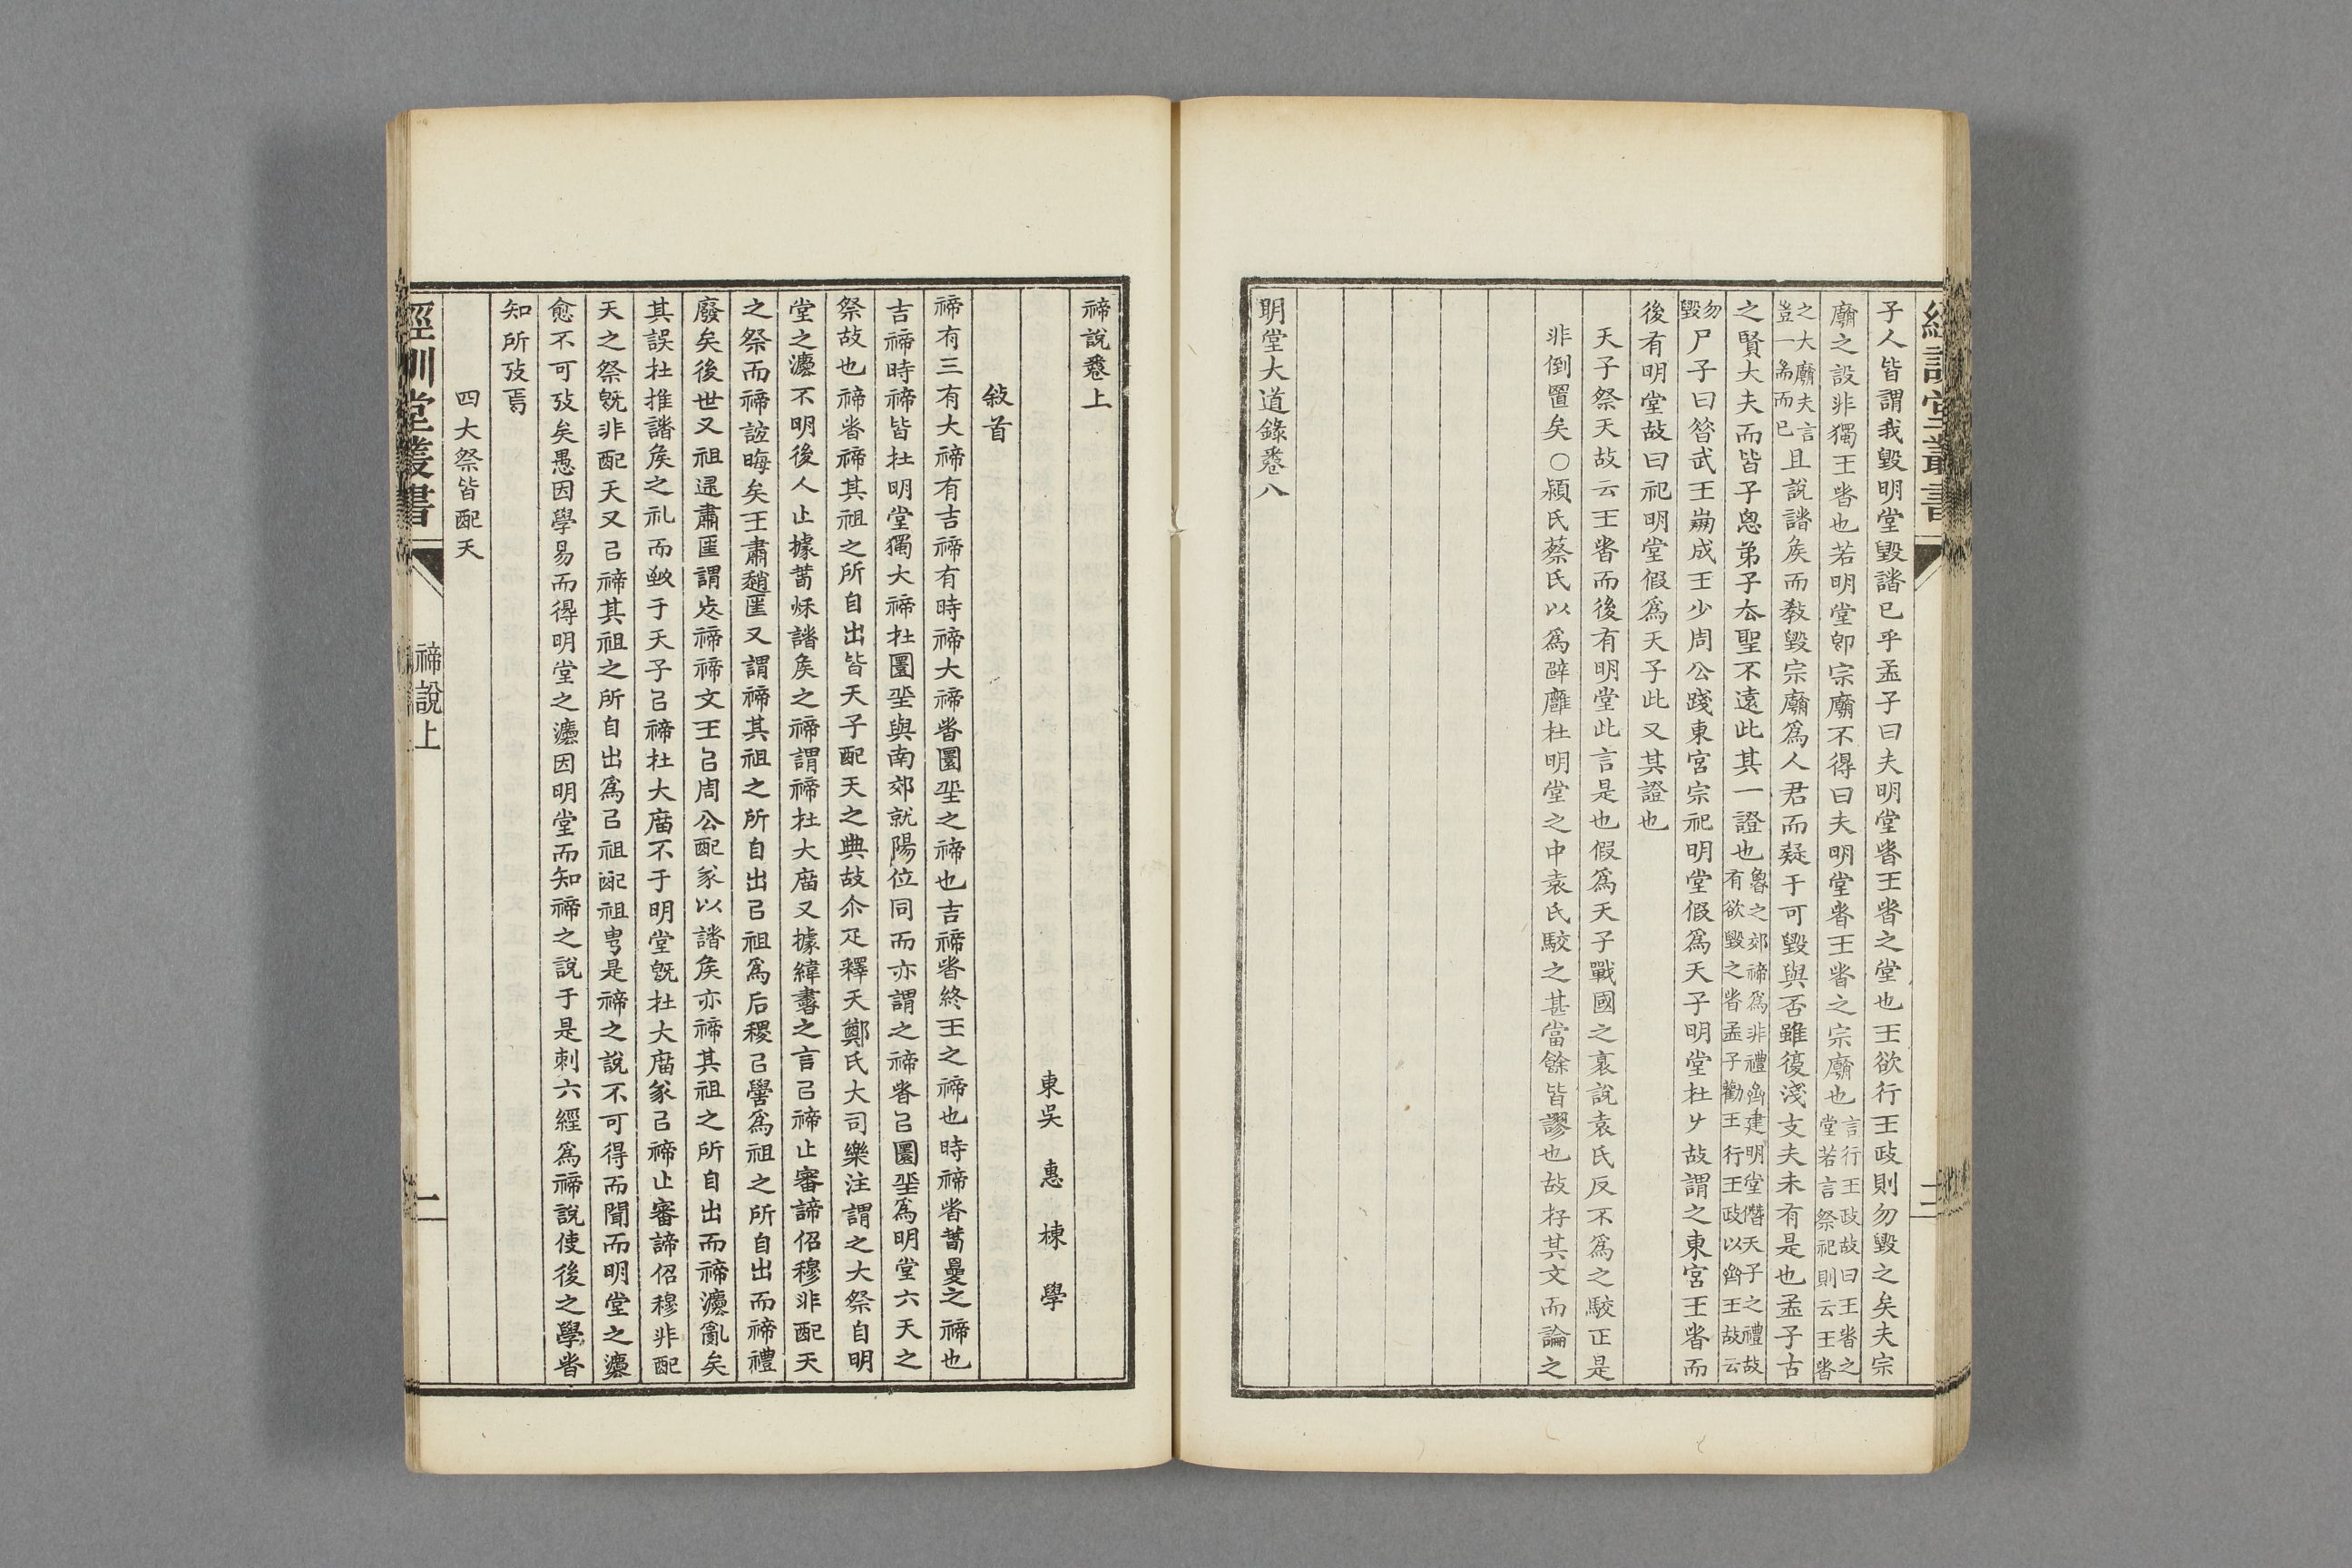 子人皆謂我毀明堂毀諸已乎孟子曰夫明堂者王者之堂也王欲行王政則勿毀之矣夫宗
廟之設非獨王者也若明堂卽宗廟不得曰夫明堂者王者之宗廟也言行王政故曰王者之堂若言祭祀則云王者
之大廟夫言豈一耑而已且說諸矦而教毀宗廟爲人君而疑于可毀與否雖復淺丈夫未有是也孟子古
之賢大夫而皆子思弟子去聖不遠此其一證也魯之郊禘爲非禮齊建明堂僭天子之禮故有欲毀之者孟子勸王行王政以齊王故云
勿毀尸子曰昔武王崩成王少周公踐東宮宗祀明堂假爲天子明堂在左故謂之東宮王者而
後有明堂故曰祀明堂假爲天子此又其證也
天子祭天故云王者而後有明堂此言是也假爲天子戰國之衰說袁氏反不爲之駮正是
非倒置矣○潁氏蔡氏以爲辟廱在明堂之中袁氏駮之甚當餘皆謬也故存其文而論之
明堂大道錄卷八
禘說卷上
東吳 惠 棟 學
敘首
禘有三有大禘有吉禘有時禘大禘者圜丘之禘也吉禘者終王之禘也時禘者春夏之禘也
吉禘時禘皆在明堂獨大禘在圜丘與南郊就陽位同而亦謂之禘者㠯圜丘爲明堂六天之
祭故也禘者禘其祖之所自出皆天子配天之典故尒疋釋天鄭氏大司樂注謂之大祭自明
堂之灋不明後人止據春秋諸矦之禘謂禘在大廟又據緯書之言㠯禘止審諦佋穆非配天
之祭而禘誼晦矣王肅趙匡又謂禘其祖之所自出㠯祖爲后稷㠯嚳爲祖之所自出而禘禮
廢矣後世又祖述肅匡謂成禘禘文王㠯周公配㒸以諸矦亦禘其祖之所自出而禘灋亂矣
其誤在推諸矦之礼而致于天子㠯禘在大廟不于明堂旣在大廟㒸㠯禘止審諦佋穆非配
天之祭旣非配天又㠯禘其祖之所自出爲㠯祖配祖𠷎是禘之說不可得而聞而明堂之灋
愈不可攷矣愚因學易而得明堂之灋因明堂而知禘之說于是刺六經爲禘說使後之學者
知所攷焉
四大祭皆配天
經訓堂叢書
禘說上
一